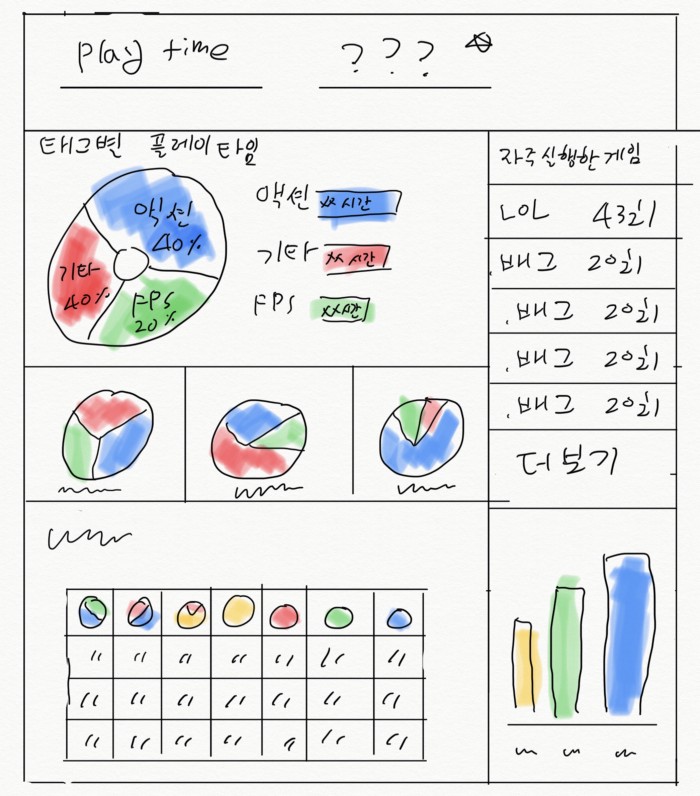 play time
? ? ?
태그별 플레이 타임
액션 40%
기타 40%
FPS 20%
액션 xx 시간
기타 xx 시간
FPS xx시간
자주 실행한 게임
LOL 43회
배그 20회
배그 20회
배그 20회
배그 20회
더보기